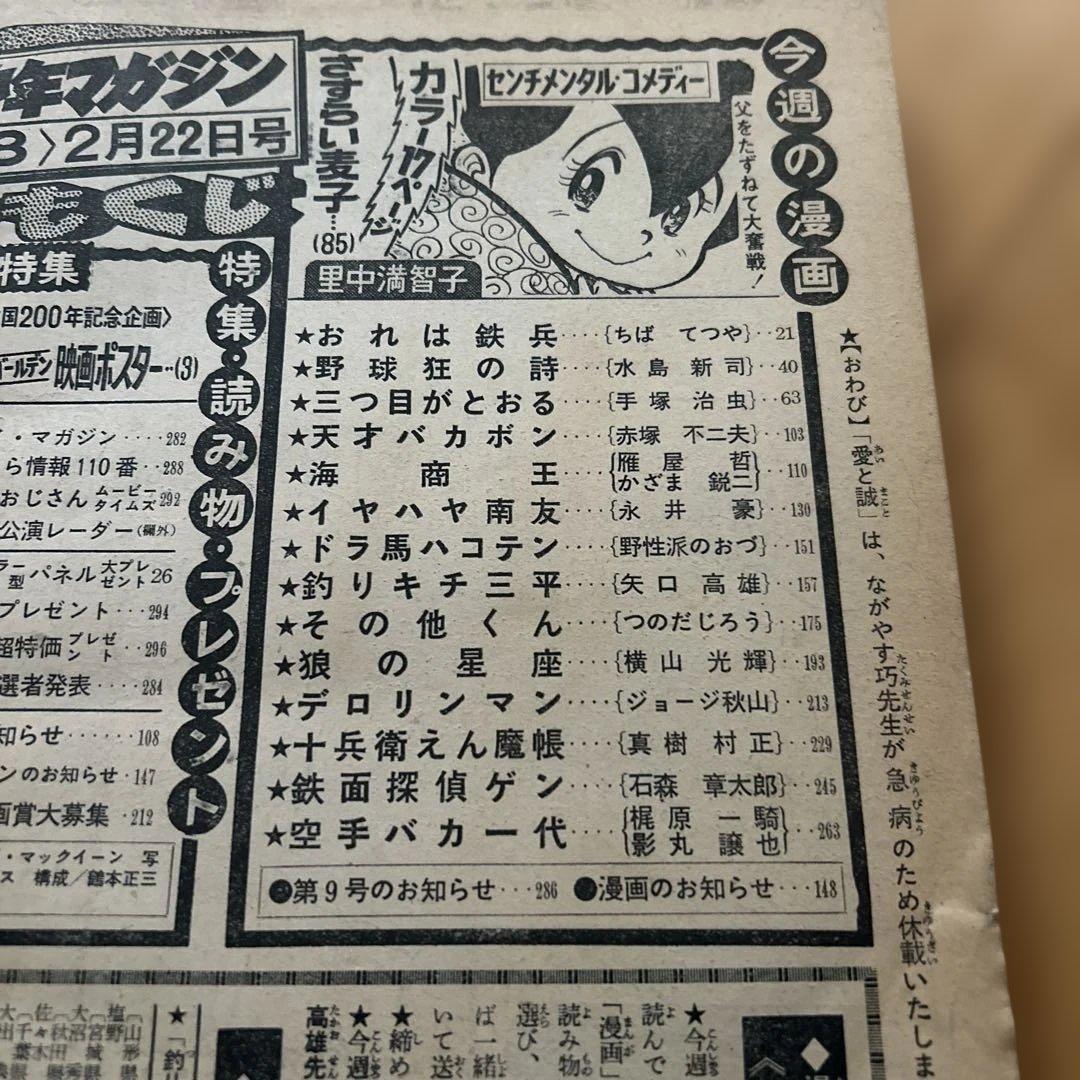 年マガジン
8〉2月22日号
もくじ
今週の漫画
センチメンタル・コメディー
父をたずねて大奮戦！
カラー17ページ
さすらい麦子…(85)
里中満智子
★おれは鉄兵‥‥{ちば てつや}‥21
★野球狂の詩‥‥{水島 新司}‥40
★三つ目がとおる‥‥{手塚 治虫}‥63
★天才バカボン‥‥{赤塚 不二夫}‥103
★海商王‥‥{雁屋 哲 かざま 鋭二}‥110
★イヤハヤ南友‥‥{永井 豪}‥130
★ドラ馬ハコテン‥‥{野性派のおづ}‥151
★釣りキチ三平‥‥{矢口 高雄}‥157
★その他くん‥‥{つのだじろう}‥175
★狼の星座‥‥{横山 光輝}‥193
★デロリンマン‥‥{ジョージ秋山}‥213
★十兵衛えん魔帳‥‥{真樹 村正}‥229
★鉄面探偵ゲン‥‥{石森 章太郎}‥245
★空手バカ一代‥‥{梶原 一騎 影丸 譲也}‥263
●第9号のお知らせ‥‥286 ●漫画のお知らせ‥‥148
特集・読み物・プレゼント
特集
国200年記念企画〉
ゴールデン映画ポスター‥(3)
・マガジン‥‥282
ら情報110番‥288
おじさん ムービータイムズ 292
公演レーダー(欄外)
ラー型パネル 大プレゼント 26
プレゼント‥‥294
超特価プレゼント‥296
選者発表‥‥284
知らせ‥‥‥108
ンのお知らせ・147
画賞大募集・212
・マックイーン 写
ス 構成／鶴本正三
★【おわび】「愛と誠」は、ながやす巧先生が急病のため休載いたしま
★今週
読んで
「漫画」
読み物
選び、
ば一緒
いて送
★締め
★今週
高雄先
★「釣